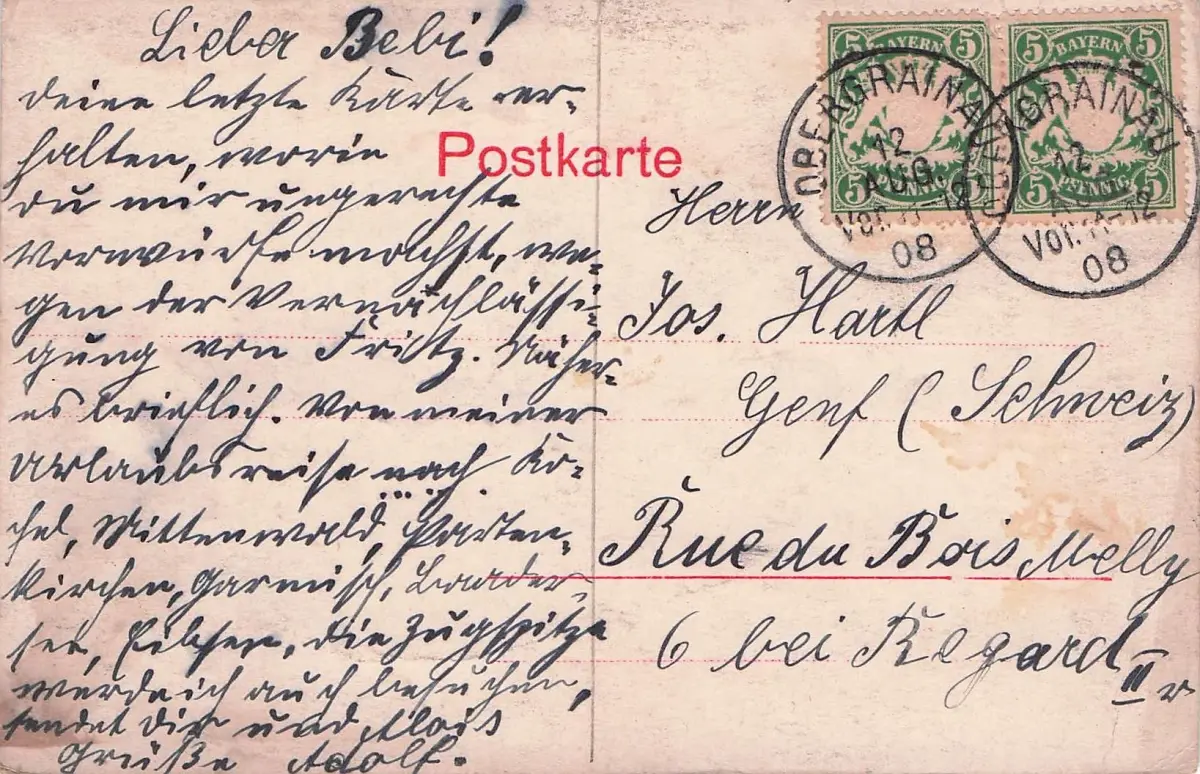 Lieber Bebi!
deine letzte Karte er-
halten, worin
du mir ungerechte
Vorwürfe machst, we-
gen der Vernachlässi-
gung von Fritz. Näher-
es brieflich. Von meiner
Urlaubsreise nach Ko-
chel, Mittenwald, Parten-
kirchen, Garmisch, Baader-
see, Eibsee, die Zugspitze
werde ich auch besuchen,
sendet dir und Alois
Grüße Adolf.
Postkarte
BAYERN 5 5 PFENNIG
BAYERN 5 5 PFENNIG
OBERGRAINAU
12.
AUG.
Vor. 11-12
08
OBERGRAINAU
12.
AUG.
Vor. 11-12
08
Herrn
Jos. Hartl
Genf (Schweiz)
Rue du Bois Melly
6 bei Regard
II r